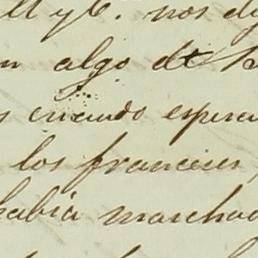 ll y 6. nos dj
n algo de
s cuando espera
los franceses,
habia marchad